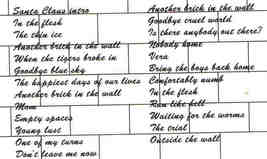 Santa Claus intro
In the flesh
The thin ice
Another brick in the wall
When the tigers broke in
Goodbye blue sky
The happiest days of our lives
Another brick in the wall
Mom
Empty spaces
Young lust
One of my turns
Don't leave me now
Another brick in the wall
Goodbye cruel world
Is there anybody out there?
Nobody home
Vera
Bring the boys back home
Comfortably numb
In the flesh
Run like hell
Waiting for the worms
The trial
Outside the wall